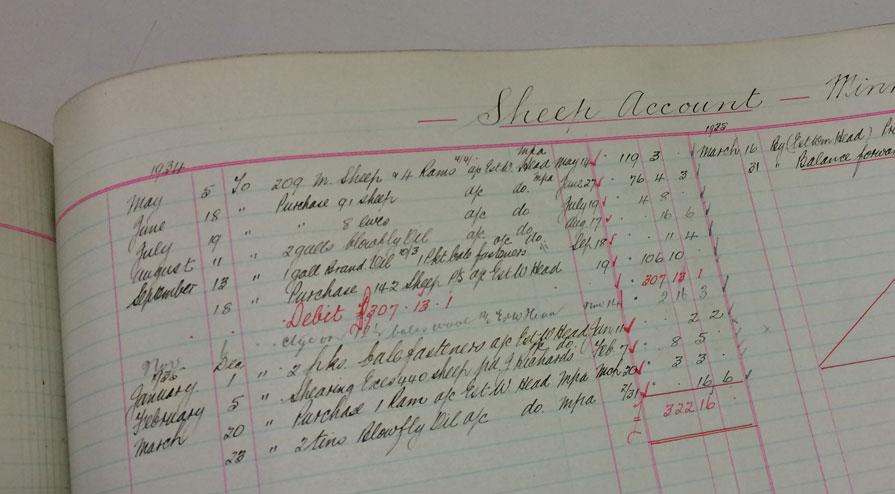 — Sheep Account — Minn
1934 1935
May 5 To 209 M. Sheep & 4 Rams a/c Est. W. Head mpa May 14 119 3 March 16 By (Est W. Head)
June 18 " Purchase 91 Sheep a/c do. mpa June 27 76 4 3 31 " Balance forwar
July 19 " " 8 Ewes a/c do July 19 4 8
August 11 " 2 galls blowfly Oil a/c do Aug. 17 16 6
September 13 " 1 gall Brand. Oil 10/3 1 Pkt bale fasteners a/c do Sep. 18 11 4
18 " Purchase 142 Sheep a/c Est. W Head 19 106 10
Debit £307 . 13 . 1 307 13 1
Nov 2 16 3
1935 Dec 2 pks. bale fasteners a/c Est W Head Jan 11 2 2
January 1 " Shearing Exes 440 sheep pd J Richards a/c do. Feb. 7 8 5
February 5 " Purchase 1 Ram a/c Est. W Head mpa Mch 20 3 3
March 20 " 2 tins Blowfly Oil a/c do. mpa 2/31 16 6
23 322 16